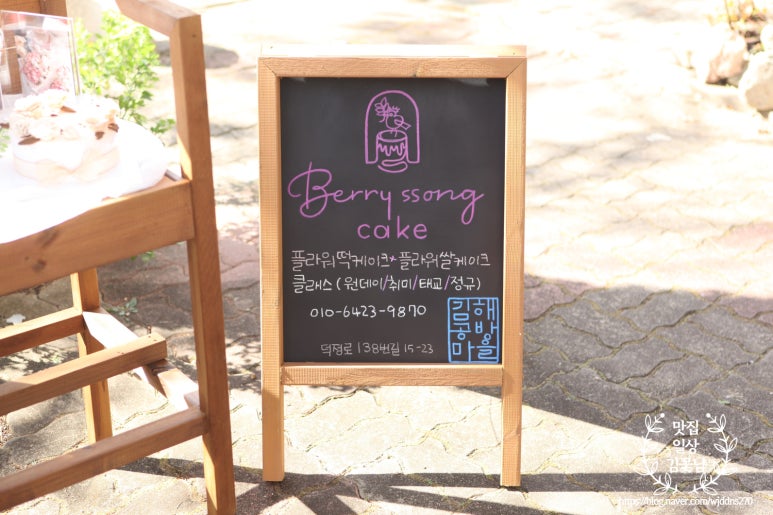 Berry ssong
cake
플라워떡케이크+플라워쌀케이크
클래스 (원데이/취미/태교/정규)
010-6423-9870
김해
공방
마을
덕정로 138번길 15-23
맛집
일상
https://blog.naver.com/wjddns270